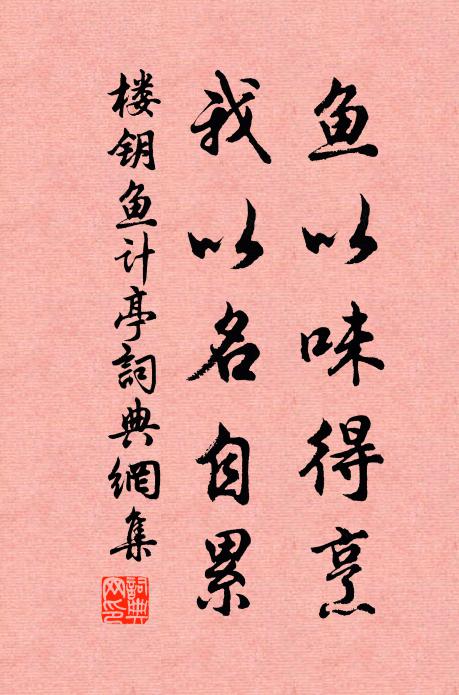 鱼以味得烹
我以名自累
楼钥鱼计亭詞典網集
詞典網印